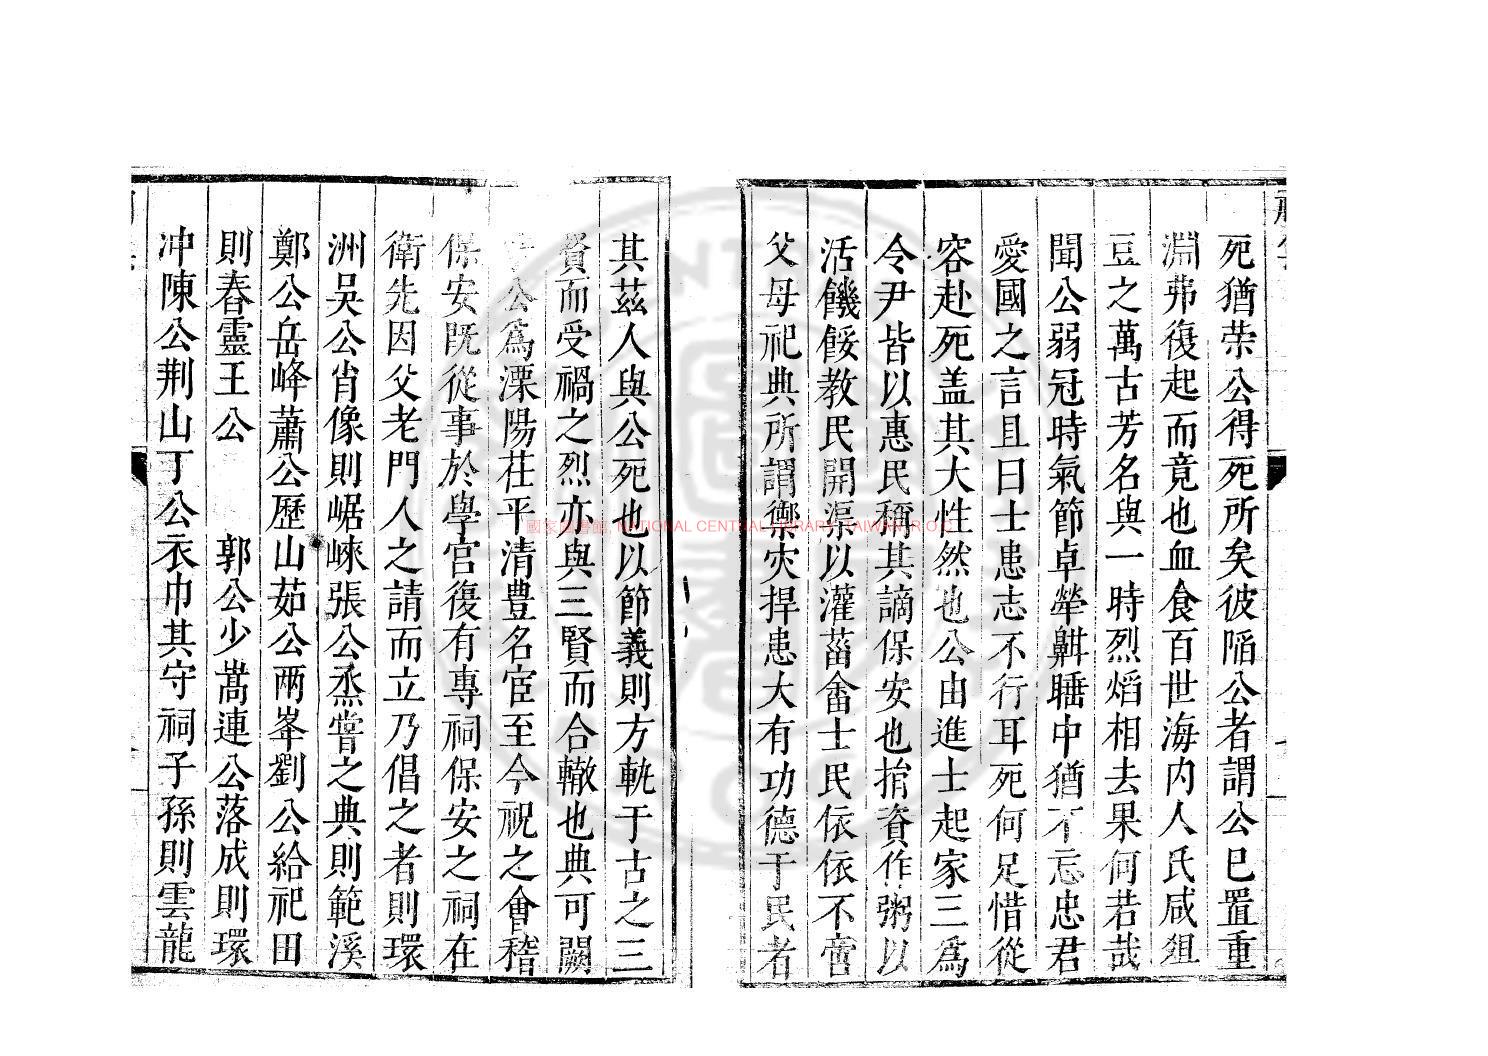 死猶荣公得死所矣彼陷公者謂公已置重
淵弗復起而竟也血食百世海内人氏咸俎
豆之萬古芳名與一時烈熖相去果何若哉
聞公弱冠時氣節卓犖鼾睡中猶不忘忠君
愛國之言且曰士患志不行耳死何足惜從
容赴死盖其大性然也公由進士起家三爲
令尹皆以惠民稱其謫保安也捐資作粥以
活饑餒教民開渠以灌菑畲士民依依不啻
父母祀典所謂禦灾捍患大有功德于民者
其兹人與公死也以節義則方軌于古之三
賢而受禍之烈亦與三賢而合轍也典可闕
公爲溧陽茌平清豊名宦至今祝之會稽
保安既從事於學宫復有專祠保安之祠在
衛先因父老門人之請而立乃倡之者則環
洲吴公肖像則崌崍張公烝嘗之典則範溪
鄭公岳峰蕭公歷山茹公兩峯劉公給祀田
則春靈王公 郭公少嵩連公落成則環
冲陳公荆山丁公衣巾其守祠子孫則雲龍
國家圖書館, NATIONAL CENTRAL LIBRARY, TAIWAN R.O.C.